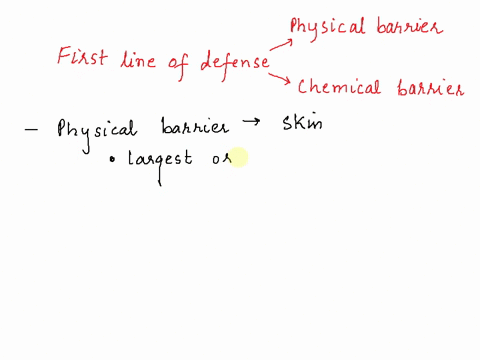 Physical barrier
First line of defense
Chemical barrier
- Physical barrier → skin
• largest or